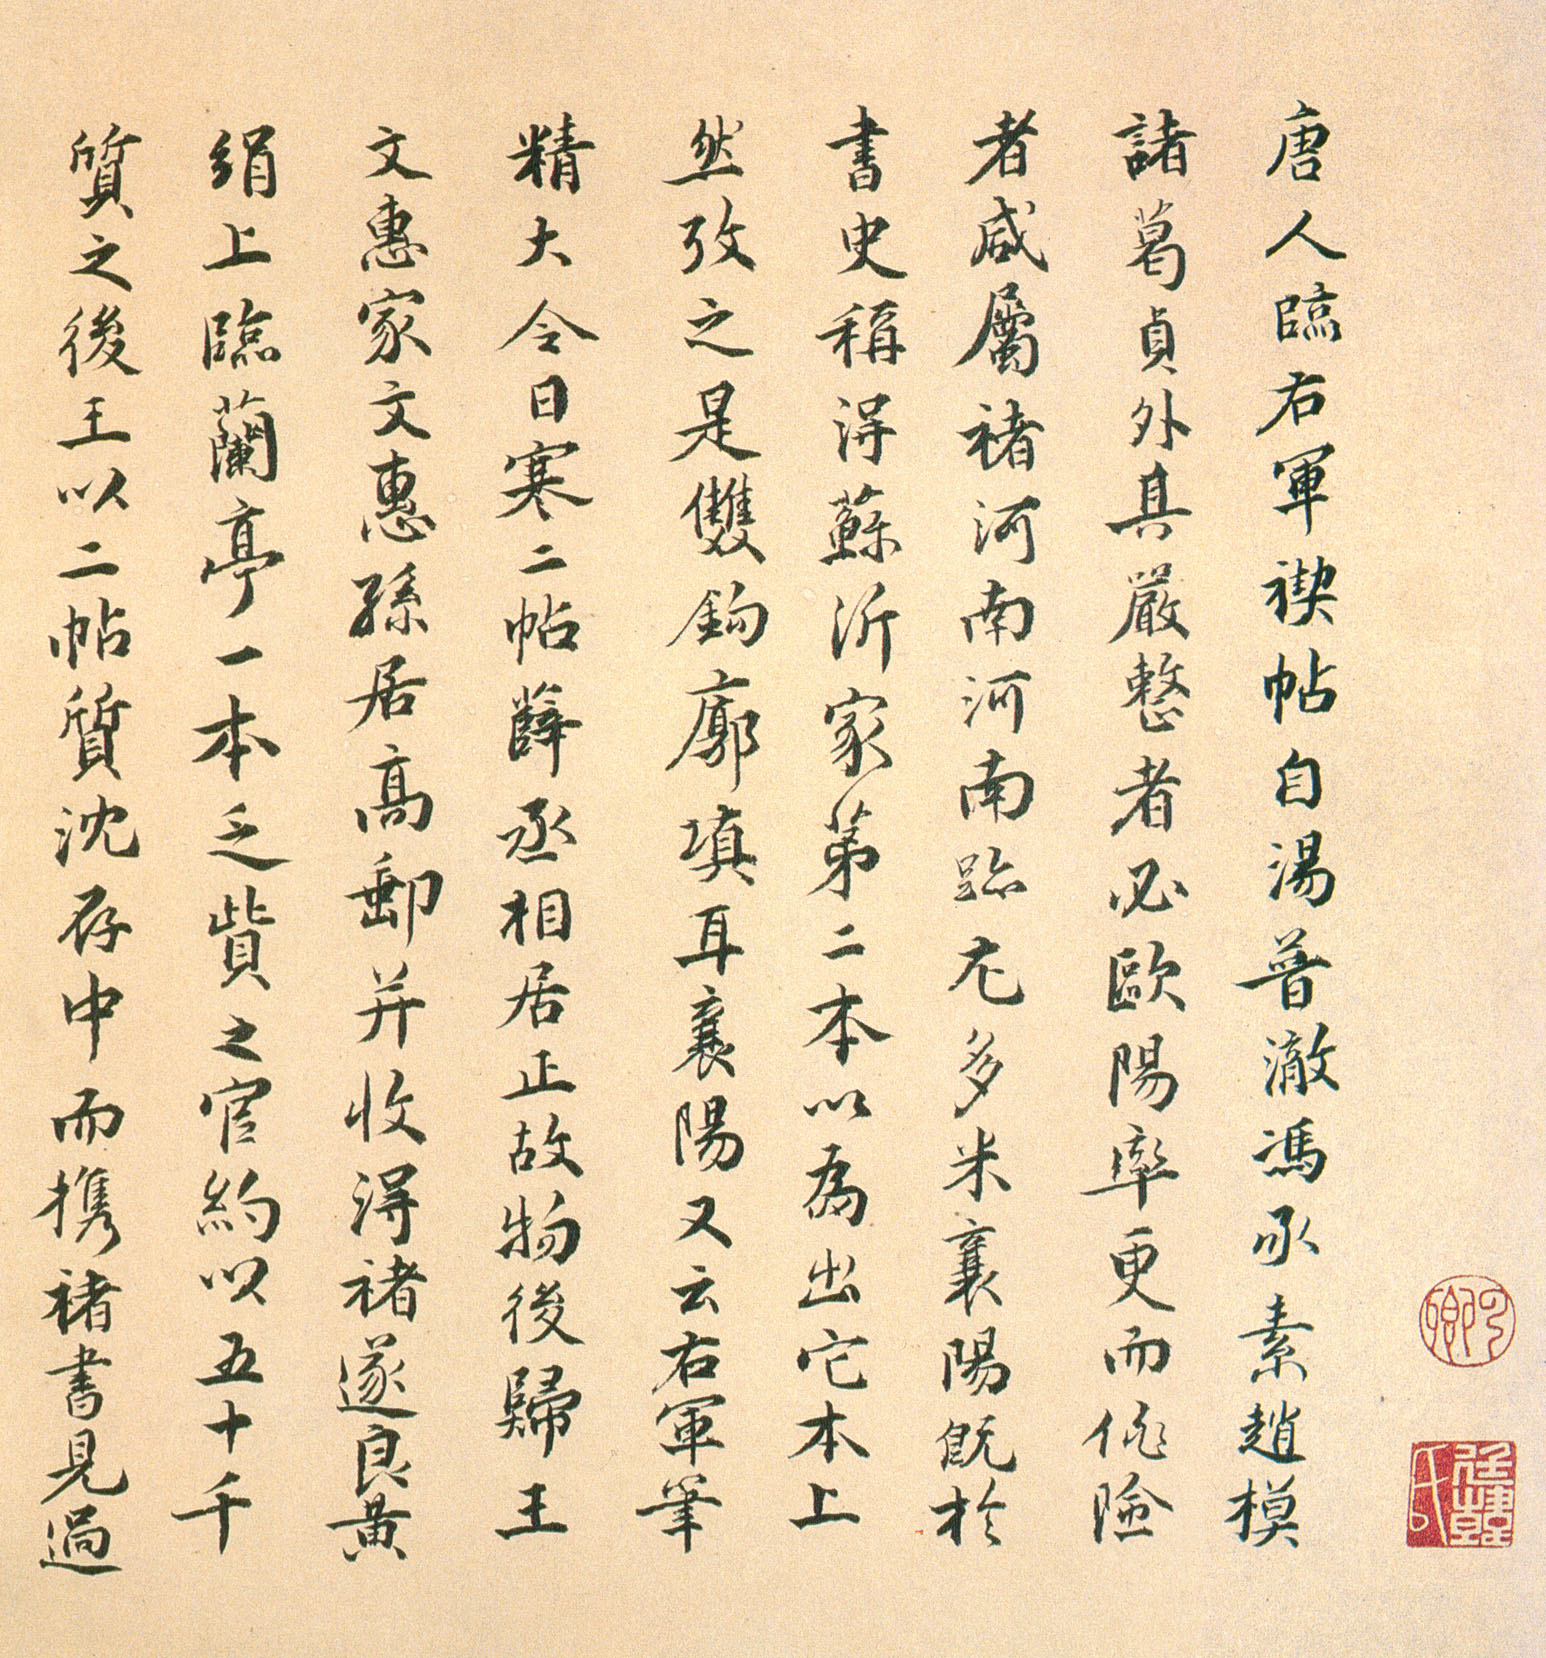 唐人臨右軍禊帖自湯普澈馮承素趙模
諸葛貞外具嚴整者必歐陽率更而佻險
者咸屬褚河南河南跡尤多米襄陽既於
書史稱得蘇沂家第二本以為出它本上
然攷之是雙鉤廓填耳襄陽又云右軍筆
精大令日寒二帖薛丞相居正故物後歸王
文惠家文惠孫居高郵并收得褚遂良黃
絹上臨蘭亭一本乏貲之官約以五十千
質之後王以二帖質沈存中而携褚書見過